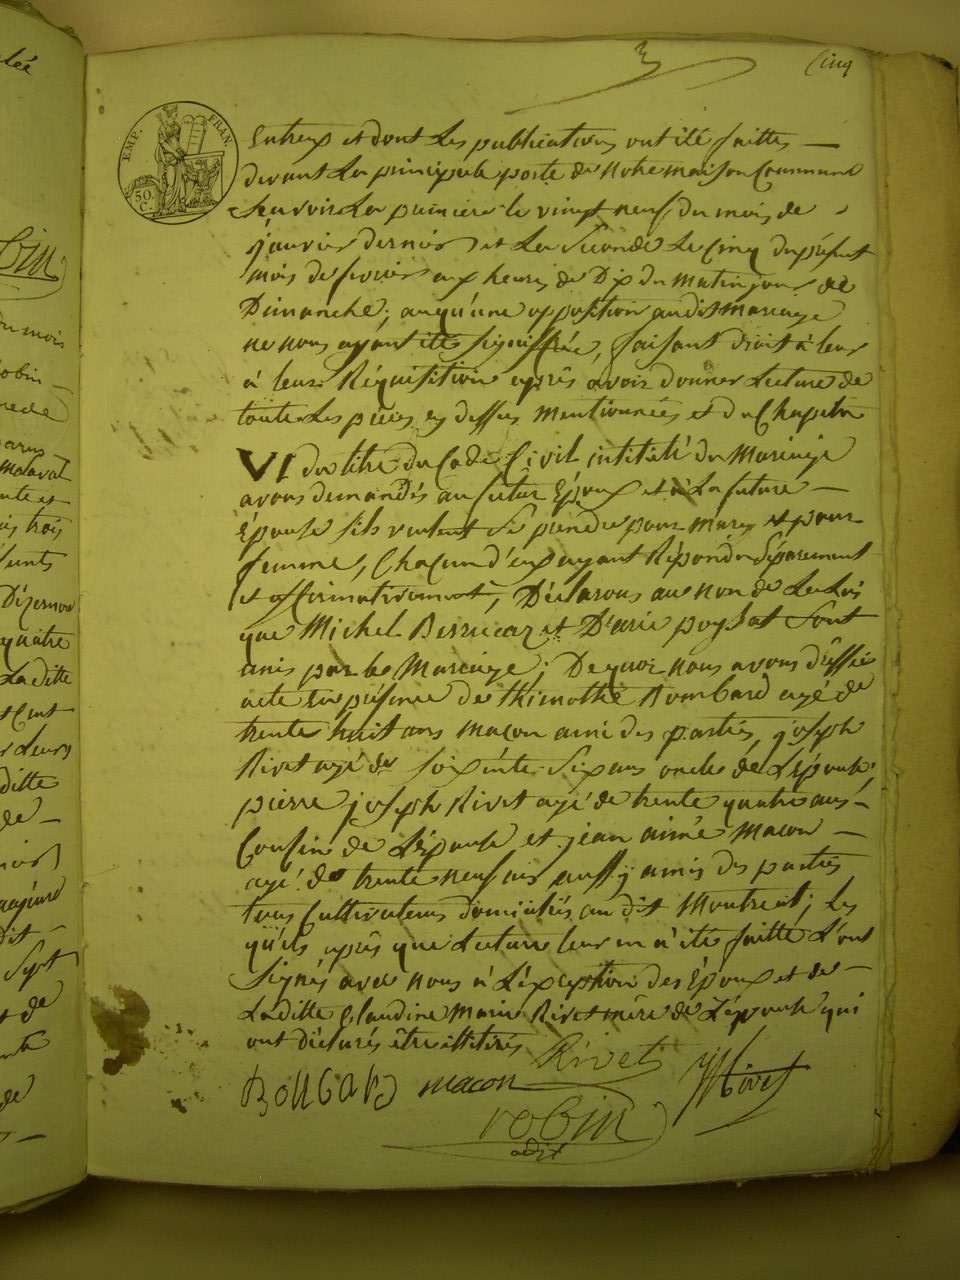 Cinq
EMP. FRAN.
50.
C.
Entreux et dont les publications ont été faittes
devant la principale porte de notre maison Commune
scavoir la premiere le vingt neuf du mois de
janvier dernier et la seconde le cinq du présent
mois de fevrier aux heures de Dix du matin jour de
Dimanche; auqu'une opposition audit mariage
ne nous ayant été signiffiée, faisant droit à leur
à leur Réquisition après avoir donner Lecture de
toute Les pièces cy dessus mentionnées et du Chapitre
VI du titre du Code Civil intitulé du Mariage
avons demandés au futur Epoux et à La future
Épouse sils veulent se prendre pour mary et pour
femme, Chacun d'eux ayant Répondu séparement
et affirmativement, Déclarons au non de La Loi
que Michel et Marie sont
unis par le Mariage; De quoi nous avons dressé
acte en présence de thimothé Bombard agé de
trente huit ans maçon ami des parties, joseph
Rivet agé de soixente six ans oncle de L'épouse,
pierre joseph Rivet agé de trente quatre ans
Cousin de L'épouse et jean aimé Macon
agé de trente neuf ans aussy amis des parties
tous Cultivateurs domiciliés au dit Montreal; Les
qu'els après que Lecture leur en a été faitte L'ont
Signés avec nous à L'exception des Époux et de
La ditte Claudine Marie Rivet mère de L'épouse qui
ont déclarés être illitirés
Rivet
BOMBARD macon Rivet
robin
adjt